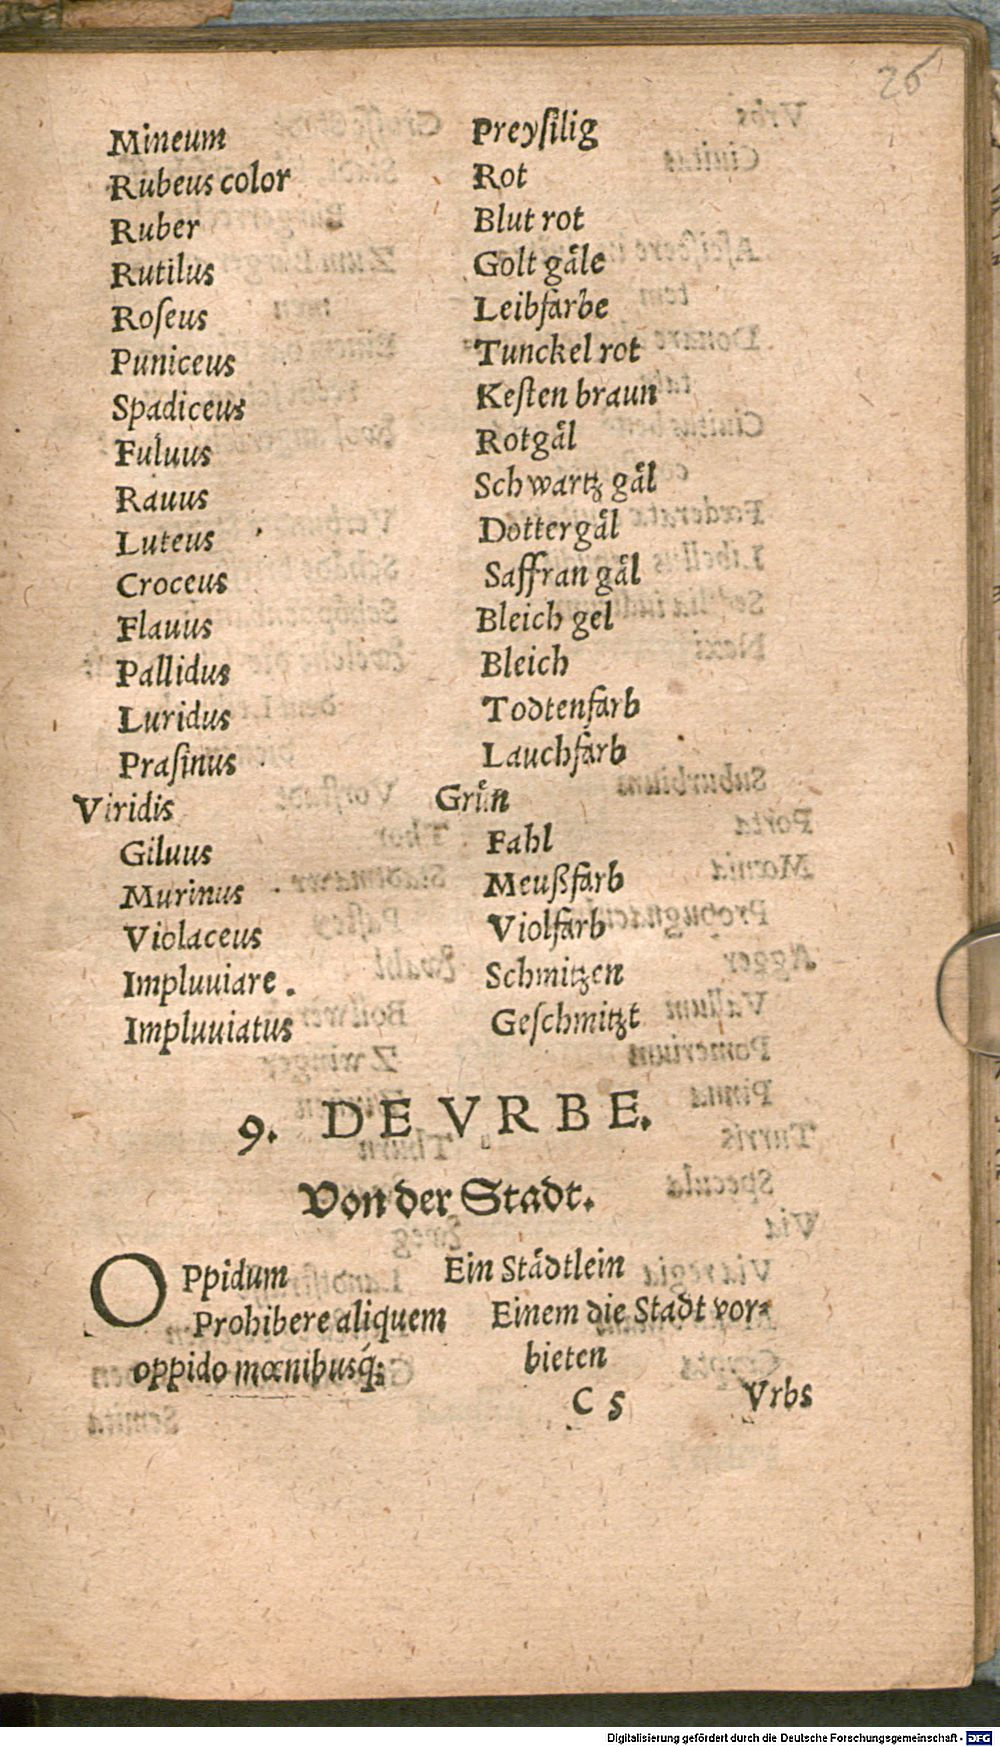 26
Mineum Preyſilig
Rubeus color Rot
Ruber Blut rot
Rutilus Golt gaͤle
Roſeus Leibfarbe
Puniceus Tunckel rot
Spadiceus Keſten braun
Fuluus Rotgaͤl
Rauus Schwartz gaͤl
Luteus Dottergaͤl
Croceus Saffran gaͤl
Flauus Bleich gel
Pallidus Bleich
Luridus Todtenfarb
Praſinus Lauchfarb
Viridis Gruͤn
Giluus Fahl
Murinus Meußfarb
Violaceus Violfarb
Impluuiare. Schmitzen
Impluuiatus Geſchmitzt
9. DE VRBE.
Von der Stadt.
OPpidum Ein Staͤdtlein
Prohibere aliquem Einem die Stadt vor⸗
oppido mœnibusq́; bieten
C 5 Vrbs
Digitalisierung gefördert durch die Deutsche Forschungsgemeinschaft - DFG